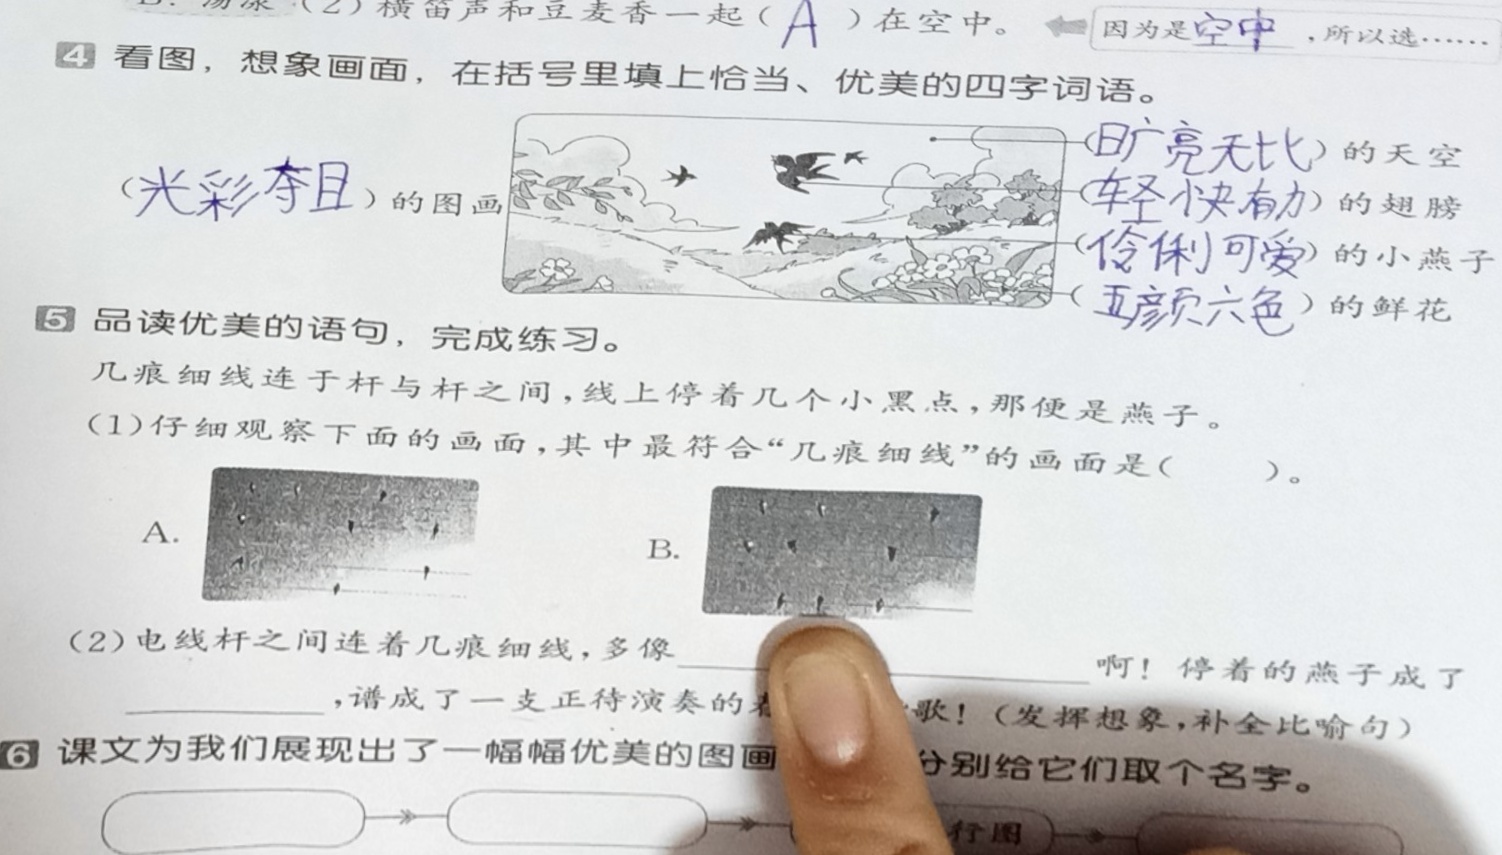 B. 荡漾 (2)横笛声和豆麦香一起( A )在空中。 因为是空中,所以选……
4 看图,想象画面,在括号里填上恰当、优美的四字词语。
(旷亮无比)的天空
(光彩夺目)的图画
(轻快有力)的翅膀
(伶俐可爱)的小燕子
(五颜六色)的鲜花
5 品读优美的语句,完成练习。
几痕细线连于杆与杆之间,线上停着几个小黑点,那便是燕子。
(1)仔细观察下面的画面,其中最符合“几痕细线”的画面是( )。
A. B.
(2)电线杆之间连着几痕细线,多像 啊!停着的燕子成了
,谱成了一支正待演奏的 歌!(发挥想象,补全比喻句)
6 课文为我们展现出了一幅幅优美的图画 分别给它们取个名字。
行图